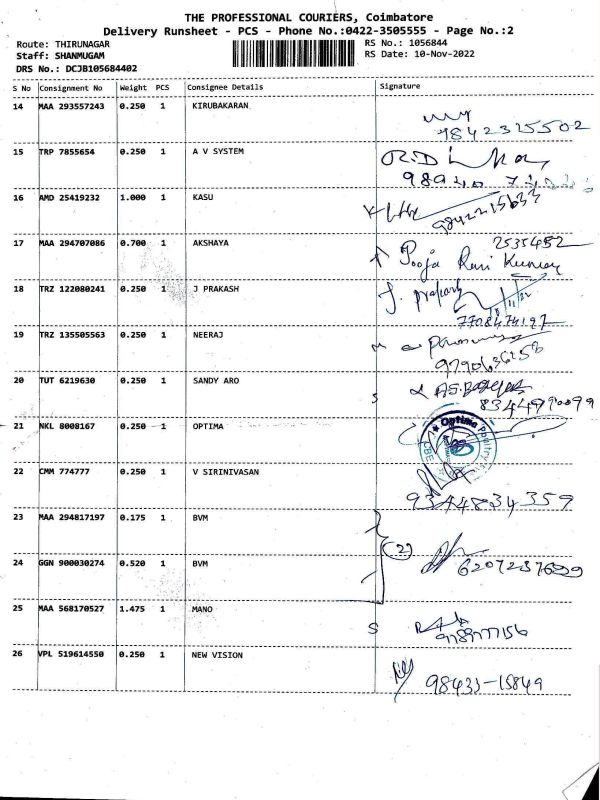 THE PROFESSIONAL COURIERS, Coimbatore
Delivery Runsheet - PCS - Phone No.:0422-3505555 - Page No.:2
Route: THIRUNAGAR RS No.: 1056844
Staff: SHANMUGAM RS Date: 10-Nov-2022
DRS No.: DCJB105684402
S No Consignment No Weight PCS Consignee Details Signature
14 MAA 293557243 0.250 1 KIRUBAKARAN
9842325502
15 TRP 7855654 0.250 1 A V SYSTEM
16 AMD 25419232 1.000 1 KASU
9842215633
17 MAA 294707086 0.700 1 AKSHAYA 2535482
Pooja Rani Kumari
18 TRZ 122080241 0.250 1 J PRAKASH
J. prakash
7708474197
19 TRZ 135505563 0.250 1 NEERAJ
9790636253
20 TUT 6219630 0.250 1 SANDY ARO
S 8344990099
21 NKL 8008167 0.250 1 OPTIMA
Optima Poultry
CBE
22 CMM 774777 0.250 1 V SIRINIVASAN
9344834359
23 MAA 294817197 0.175 1 BVM
(2)
24 GGN 900030274 0.520 1 BVM
6207237699
25 MAA 568170527 1.475 1 MANO
S 9789777156
26 VPL 519614550 0.250 1 NEW VISION
98433-15849